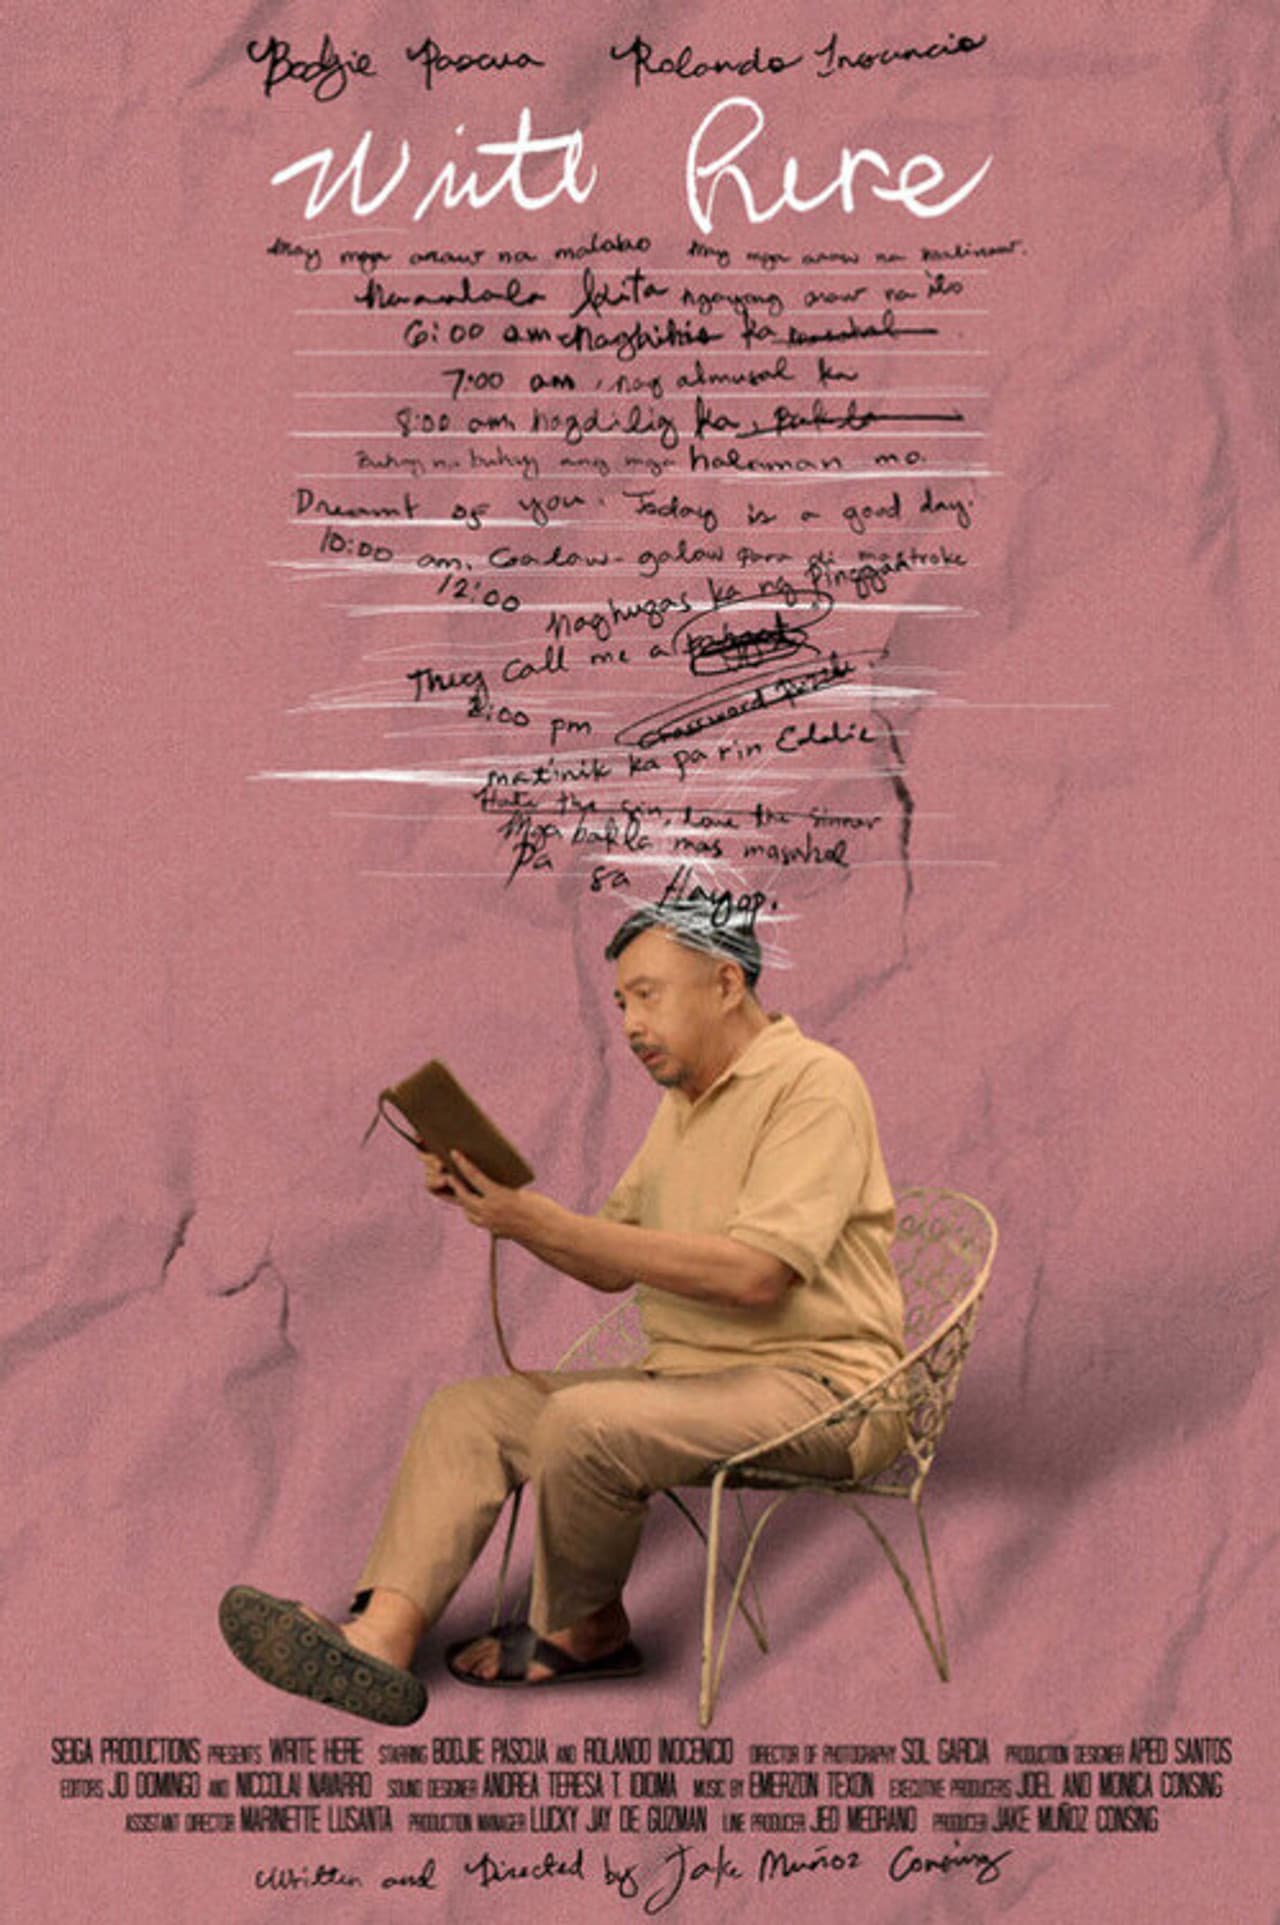 Bodjie Pascua Rolando Inocencio
Write Here
May mga araw na malabo May mga araw na malinaw.
Naaalala kita ngayong araw na ito
6:00 am Nagbihis ka
7:00 am, nag almusal ka
8:00 am nagdilig ka, Bakla
Buhay na buhay ang mga halaman mo.
Dreamt of you. Today is a good day.
10:00 am. Galaw-galaw para di mastroke
12:00 naghugas ka ng Pinggan
They call me a
2:00 pm crossword puzzle.
matinik ka pa rin Eddie
Hate the sin, love the sinner
Mga bakla mas masahol
Pa sa Hayop.
SEIGA PRODUCTIONS PRESENTS WRITE HERE STARRING BODJIE PASCUA AND ROLANDO INOCENCIO DIRECTOR OF PHOTOGRAPHY SOL GARCIA PRODUCTION DESIGNER APED SANTOS
EDITORS JO DOMINGO AND NICCOLAI NAVARRO SOUND DESIGNER ANDREA TERESA T. IDIOMA MUSIC BY EMERZON TEXON EXECUTIVE PRODUCERS JOEL AND MONICA CONSING
ASSISTANT DIRECTOR MARINETTE LUSANTA PRODUCTION MANAGER LUCKY JAY DE GUZMAN LINE PRODUCER JED MEDRANO PRODUCER JAKE MUÑOZ CONSING
Written and Directed by Jake Muñoz Consing